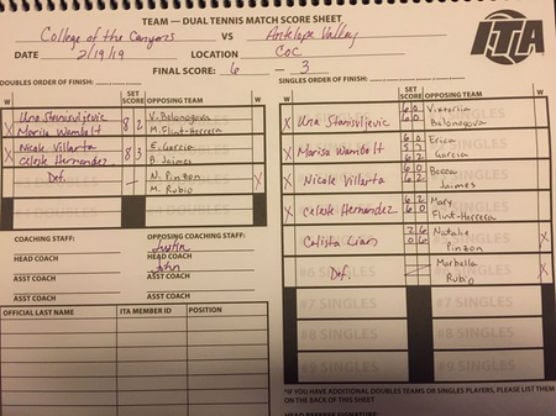 TEAM — DUAL TENNIS MATCH SCORE SHEET
College of the Canyons VS Antelope Valley
DATE 2/19/19 LOCATION COC
FINAL SCORE: 6 — 3
ITA
DOUBLES ORDER OF FINISH:
W SET SCORE OPPOSING TEAM W
X Una Stanisvljevic 8 2 V. Belonogova
Marisa Wambolt M. Flint-Herrera
X Nicole Villarta 8 3 E. Garcia
Celeste Hernandez B. Jaimes
Def. — N. Pinzon X
M. Rubio
SINGLES ORDER OF FINISH:
W SET SCORE OPPOSING TEAM W
X Una Stanisvljevic 6 0 Viktoriia
6 0 Belonogova
X Marisa Wambolt 6 0 Erica
5 7 Garcia
6 2
X Nicole Villarta 6 0 Becca
6 2 Jaimes
X Celeste Hernandez 6 2 Mary
6 0 Flint-Herrera
Calista 2 6 Natalie X
0 6 Pinzon
#6 SINGLES
Def. Marbella X
Rubio
#7 SINGLES #7 SINGLES
#8 SINGLES #8 SINGLES
#9 SINGLES #9 SINGLES
COACHING STAFF: OPPOSING COACHING STAFF:
Justin
HEAD COACH HEAD COACH
John
ASST COACH ASST COACH
ASST COACH ASST COACH
OFFICIAL LAST NAME ITA MEMBER ID POSITION
*IF YOU HAVE ADDITIONAL DOUBLES TEAMS OR SINGLES PLAYERS, PLEASE LIST THEM
ON THE BACK OF THIS SHEET
HEAD REFEREE SIGNATURE: